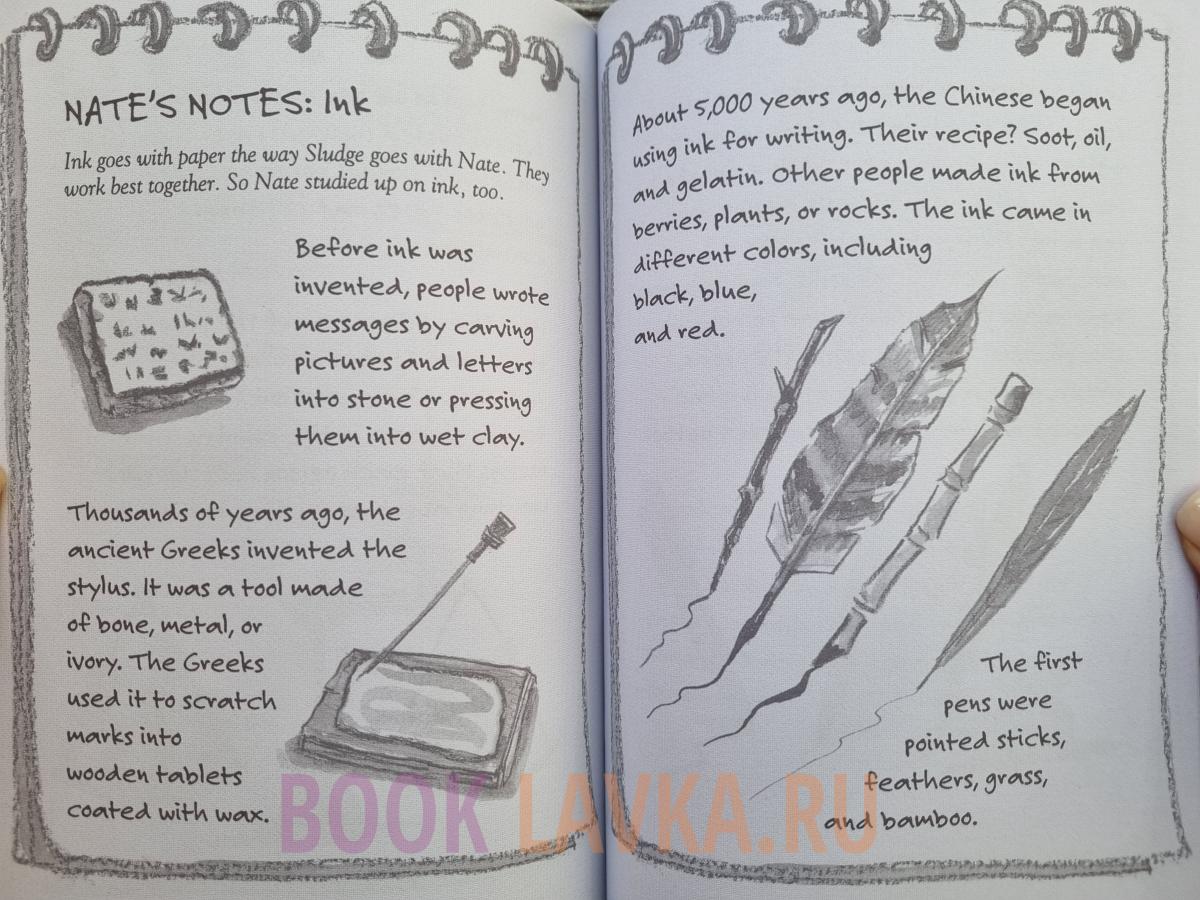 NATE'S NOTES: Ink
Ink goes with paper the way Sludge goes with Nate. They
work best together. So Nate studied up on ink, too.
Before ink was
invented, people wrote
messages by carving
pictures and letters
into stone or pressing
them into wet clay.
Thousands of years ago, the
ancient Greeks invented the
stylus. It was a tool made
of bone, metal, or
ivory. The Greeks
used it to scratch
marks into
wooden tablets
coated with wax.
About 5,000 years ago, the Chinese began
using ink for writing. Their recipe? Soot, oil,
and gelatin. Other people made ink from
berries, plants, or rocks. The ink came in
different colors, including
black, blue,
and red.
The first
pens were
pointed sticks,
feathers, grass,
and bamboo.
BOOK LAVKA.RU